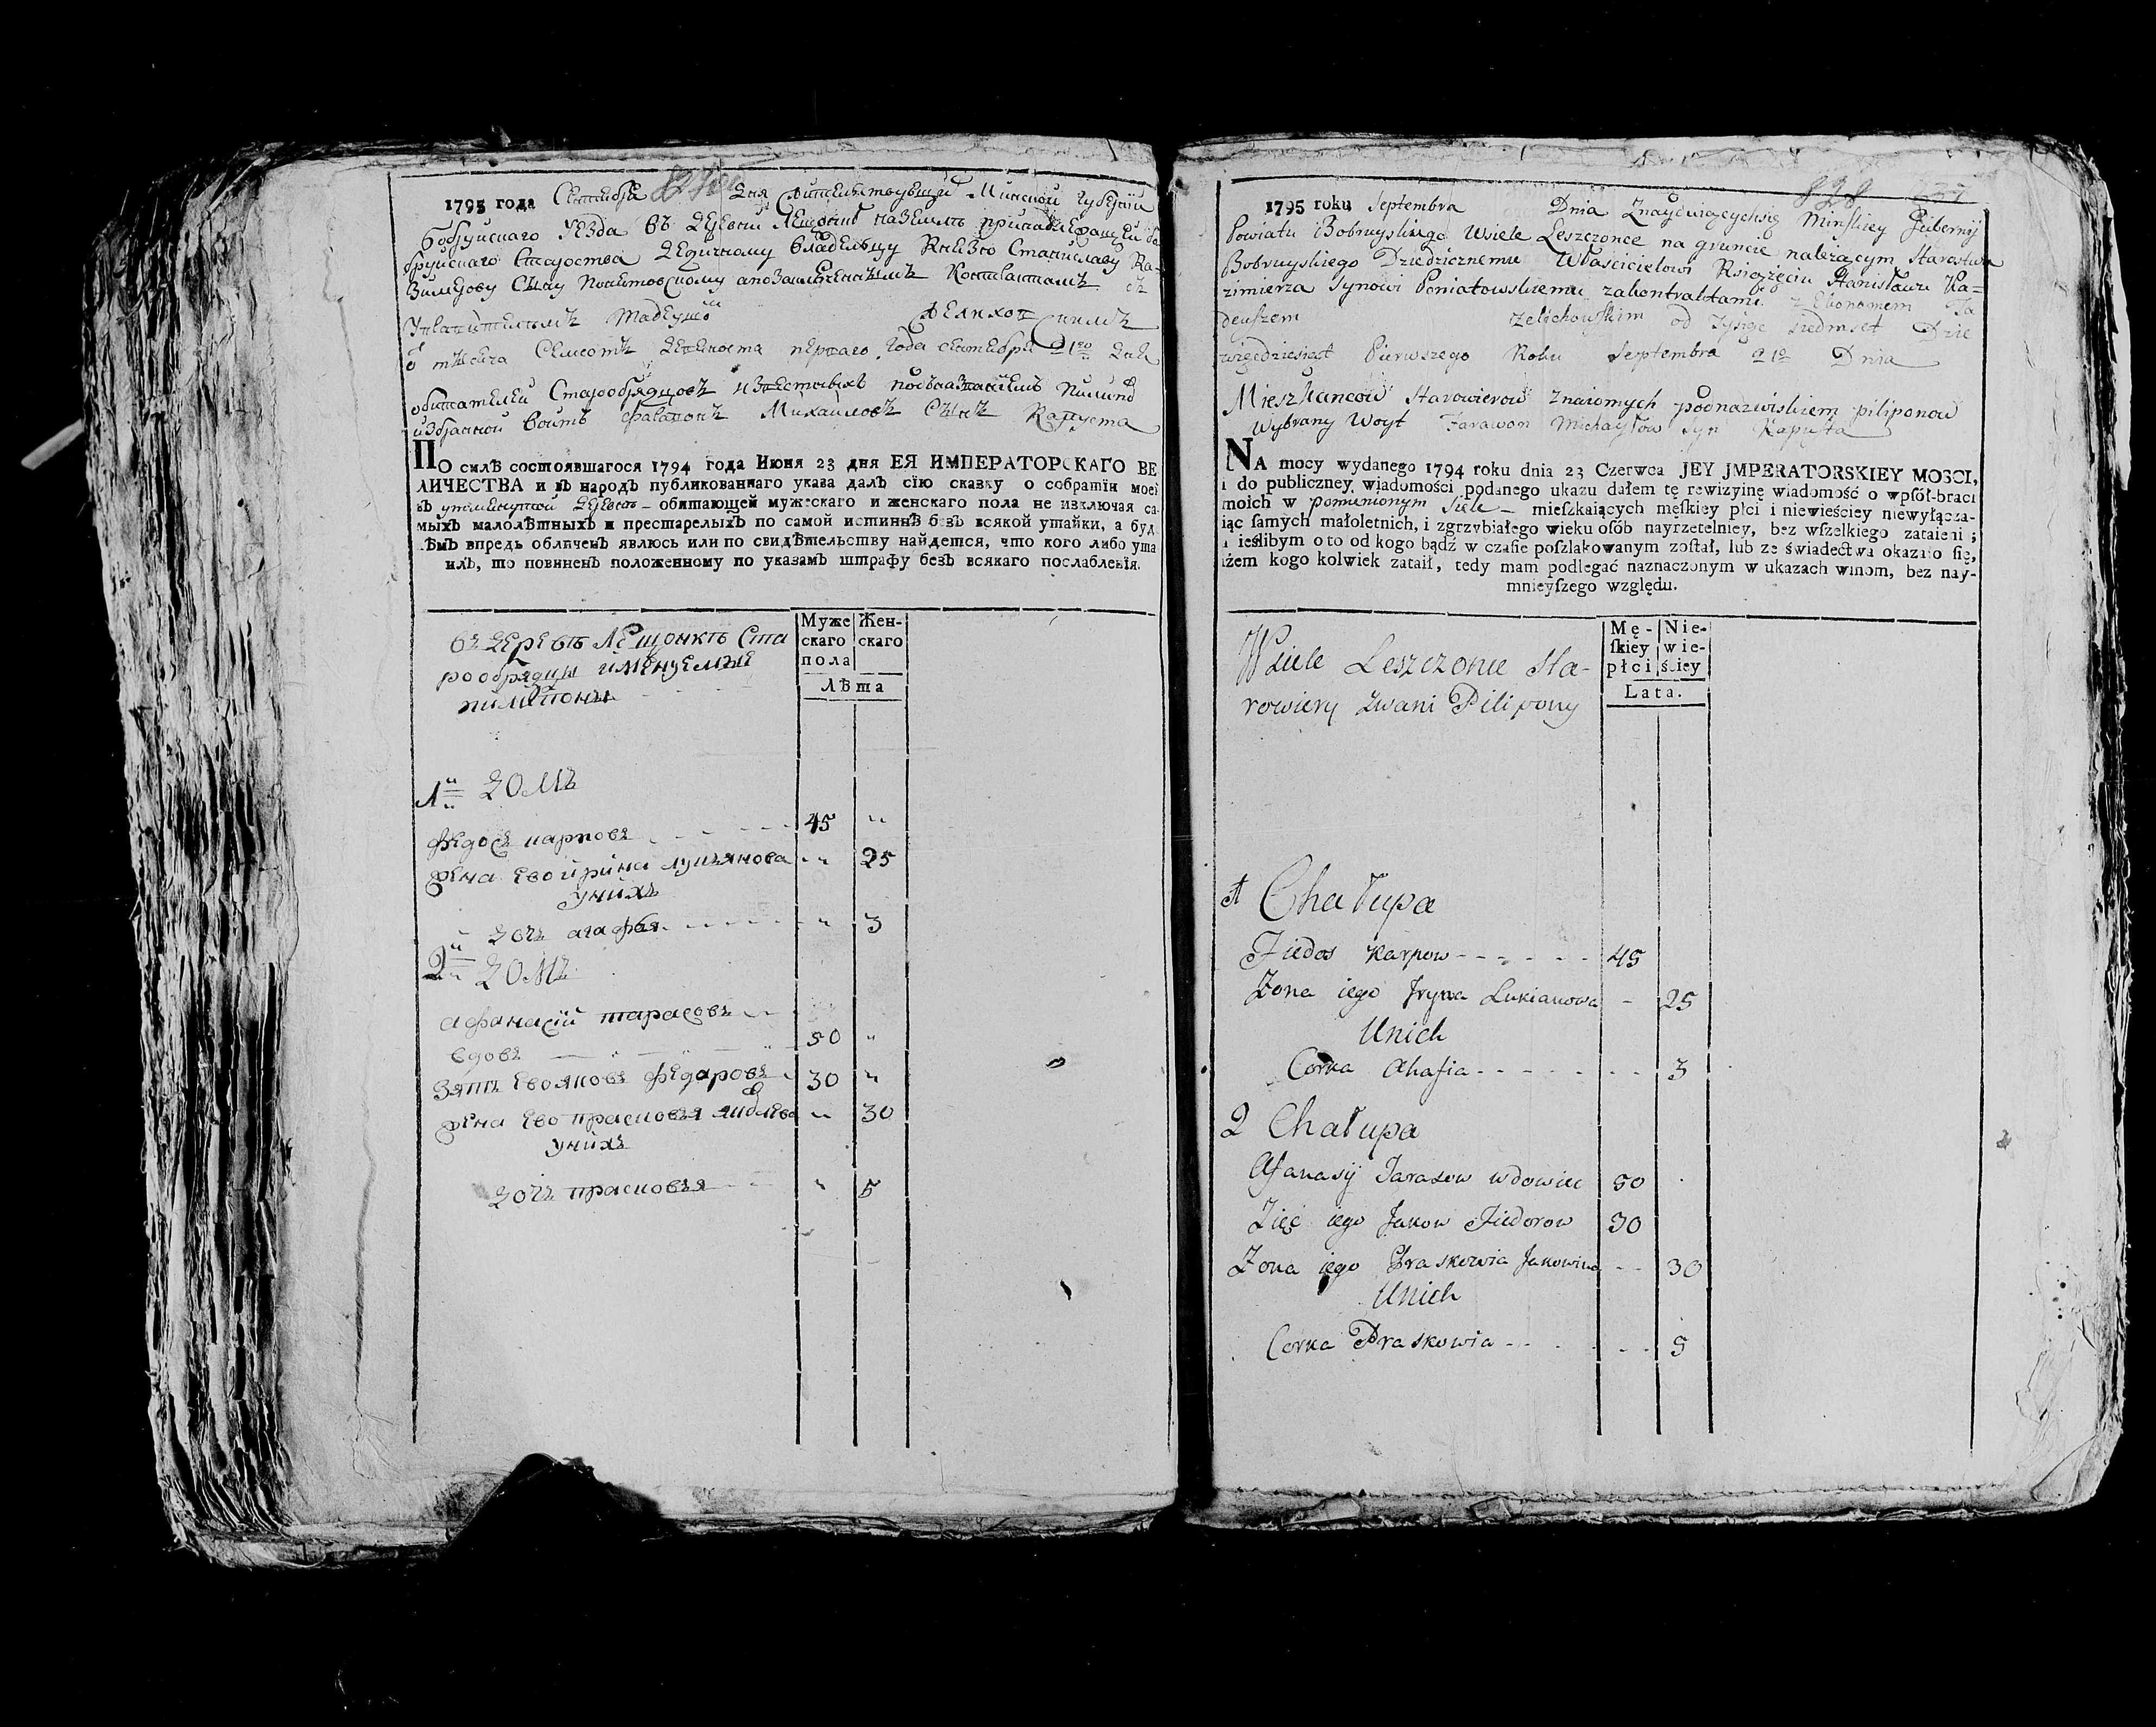 1795 года Сентебра дня Минской Губернии
Бобруйского уезда въ деревни на земли принадлежащей Бо
бруйского Староства дедичному владельцу Князю Станиславу Ка-
Сыну Понятовскому Контвактамъ съ
Тадеушо
тысеча Семсотъ перваго года сентебра 21го дня
обитателей Старообрядцовъ
избраной Войтъ Фаваронъ Михайловъ Сынъ Капуста
ПО силѣ состоявшагося 1794 года Июня 23 дня ЕЯ ИМПЕРАТОРСКАГО ВЕ
ЛИЧЕСТВА и въ народъ публикованнаго указа далъ сїю сказку о собратїи моей
въ деревнѣ - обитающей мужескаго и женскаго пола не изключая са
мыхъ малолѣтныхъ и престарелыхъ по самой истиннѣ безъ всякой утайки, а буд
ѣмъ впредь обличенъ явлюсь или по свидѣтельству найдется, что кого либо ута
илъ, то повиненъ положенному по указамъ штрафу безъ всякаго послабленїя.
въ деревнѣ Лещонкѣ Ста
рообрядцы именуемые
пилипоны
Муже
скаго
пола
Жен-
скаго
Лѣта
1й домъ
федосъ карповъ 45 "
жена ево ирина лукъянова " 25
у нихъ
дочь агафья " 3
2й домъ
афанасiй тарасовъ
вдовъ 50 "
зять ево яковъ федаровъ 30 "
жена ево прасковъя " 30
у нихъ
дочь прасковъя " 5
828
1795 roku Septembra Dnia Znayduiącychsię Minskiey Gubernij
Powiatu Bobruyskiego Wsiele Leszczonce na gruncie należącym Starostwa
Bobruyskiego Dziedzicznemu Właścicielowi Książęciu Stanisławu Ka=
zimierza Synowi Poniatowskiemu zakontraktami z Ekonomem Ta
deuszem Zelichowskim od Tysiąc siedmset Dzie
więdziesiąt Pierwszego Roku Septembra 21o Dnia
Mieszkancow Starowierow Znaiomych podnazwiskiem piliponow
Wybrany Woyt Farawon Michayłow syn Kapusta
NA mocy wydanego 1794 roku dnia 23 Czerwca JEY JMPERATORSKIEY MOSCI,
i do publiczney wiadomości podanego ukazu dałem tę rewizyinę wiadomość o wpſół-braci
moich w pomienionym Siele - mieszkaiących męſkiey płci i niewieściey niewyłącza-
iąc ſamych małoletnich, i zgrzybiałego wieku oſób nayrzetelniey, bez wſzelkiego zataieni;
i ieślibym o to od kogo bądź w czaſie poſzlakowanym został, lub ze świadectwa okazało ſię,
iżem kogo kolwiek zataił, tedy mam podlegać naznaczonym w ukazach winom, bez nay-
mnieyſzego względu.
Wsiele Leszczonce Sta-
rowiery zwani Pilipony
Mę-
ſkiey
płci
Nie-
wie-
ściey
Lata.
1 Chałupa
Fiedos Karpow 45
Zona iego Iryna Lukianowa - 25
Unich
Corka Ahafia 3
2 Chałupa
Afanasij Tarasow wdowiec 50
Zięć iego Jakow Fiedorow 30
Zona iego Praskowia Jakowina 30
Unich
Corka Praskowia 5